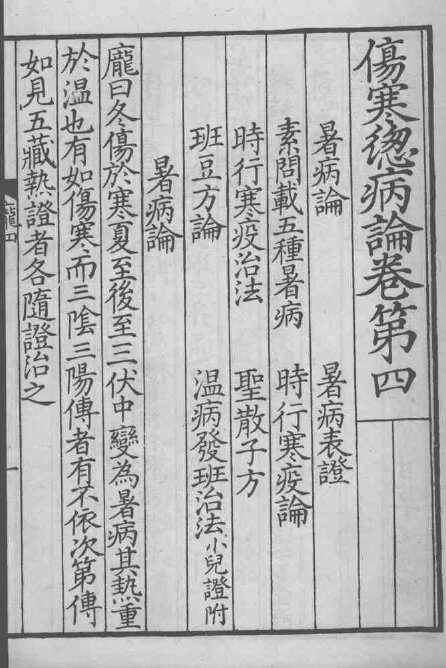 傷寒緫病論卷第四
暑病論　暑病表證
素問載五種暑病　時行寒疫論
時行寒疫治法　聖散子方
班豆方論　温病發班治法小兒證附
暑病論
龐曰冬傷於寒夏至後至三伏中變為暑病其熱重
於温也有如傷寒而三陰三陽傳者有不依次第傳
如見五藏熱證者各隨證治之
龐四